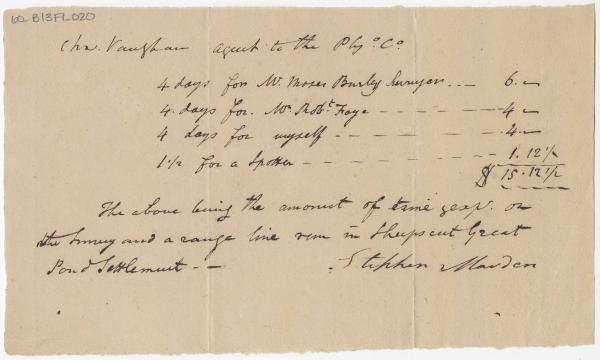 60_B13F1_020
Cha. Vaughan agent to the Ply.o C.o
4 days for Mr. Moses Burley Surveyor -- 6.-
4. days for. Mr. Robt. Foye - - - - - 4-
4 days for myself - - - - - - .4.-
1 1/2 for a Spotter - - - - - - 1.12 1/2
$ 15.12 1/2
The above being the amount of time & exp. on
the Survey and a range line run in Sheepscut Great
Pond Settlement. --
Stephen Marden